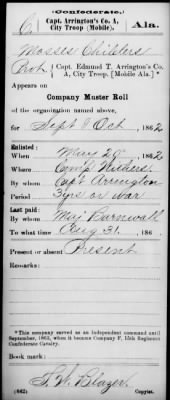 (Confederate.)
C Capt. Arrington's Co. A, Ala.
City Troop (Mobile)
Mosses Childers
Pvt., Capt. Edmund T. Arrington's Co.
A, City Troop. (Mobile Ala.)*
Appears on
Company Muster Roll
of the organization named above,
for Sept & Oct, 1862
Enlisted:
When May 29, 1862
Where Camp
By whom Capt Arrington
Period 3 yrs or war
Last paid:
By whom Maj Barnwall
To what time Aug 31, 186
Present or absent Present
Remarks:
*This company served as an independent command until
September, 1863, when it became Company F, 15th Regiment
Confederate Cavalry.
Book mark:
S. W. Blazer
(642) Copyist.